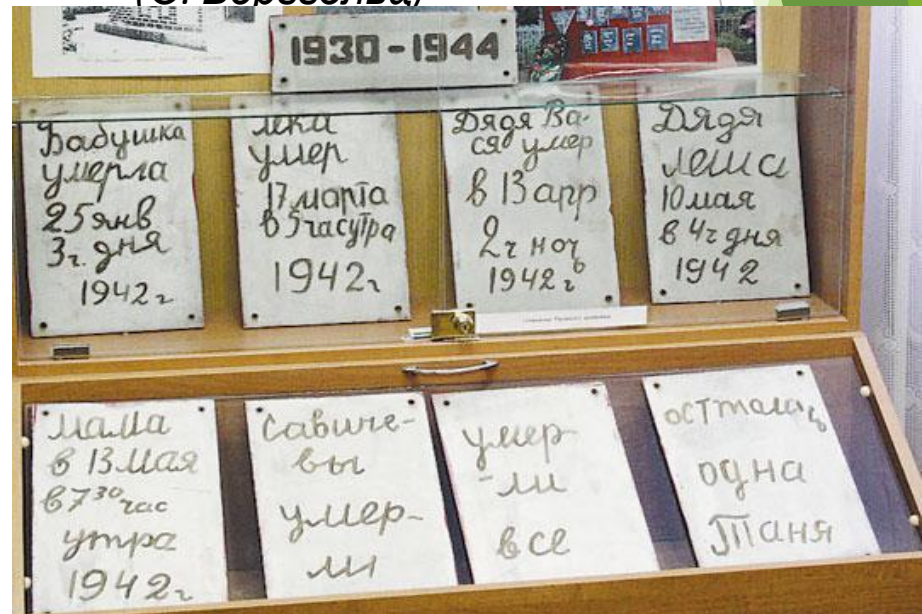 1930-1944
Бабушка
умерла
25 янв
3ч. дня
1942г
Лека
умер
17 марта
в 5 час утра
1942г
Дядя Ва-
ся умер
в 13 апр
2ч ноч
1942г
Дядя
Леша
10 мая
в 4ч дня
1942
Мама
в 13 мая
в 7 30 час
утра
1942г
Савиче-
вы
умер-
ли
умер-
-ли
все
осталась
одна
Таня